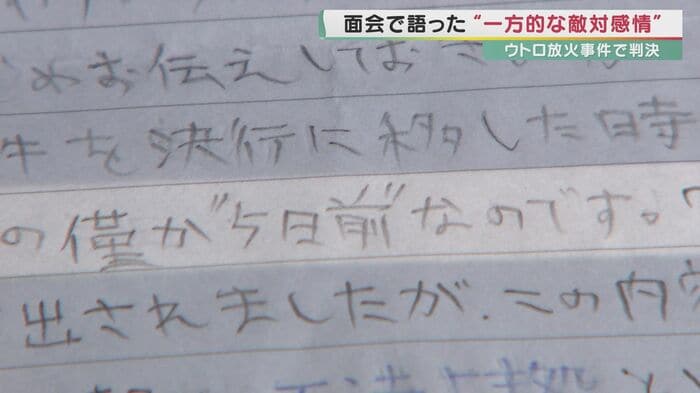 面会で語った“一方的な敵対感情”
ウトロ放火事件で判決
お伝えしてお
を決行に移した時
の僅か”5日前”なのです。
出されましたが、この内